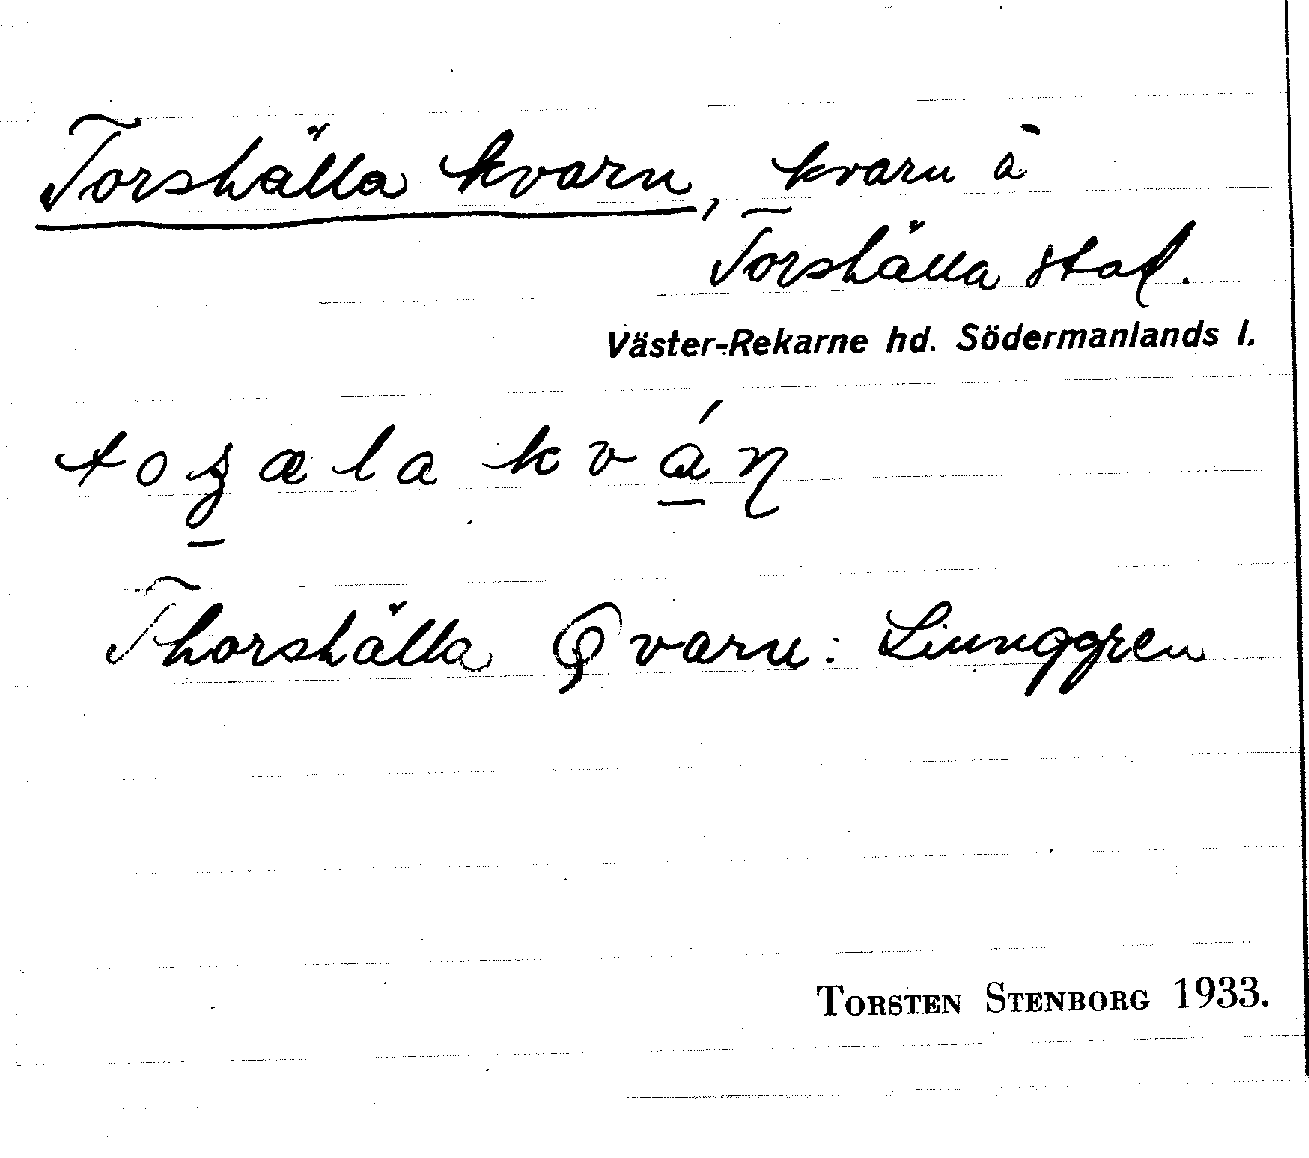 Torshälla kvarn, kvarn å
Torshälla stad.
Väster-Rekarne hd. Södermanlands l.
Thorshälla Qvarn: Ljunggren
TORSTEN STENBORG 1933.